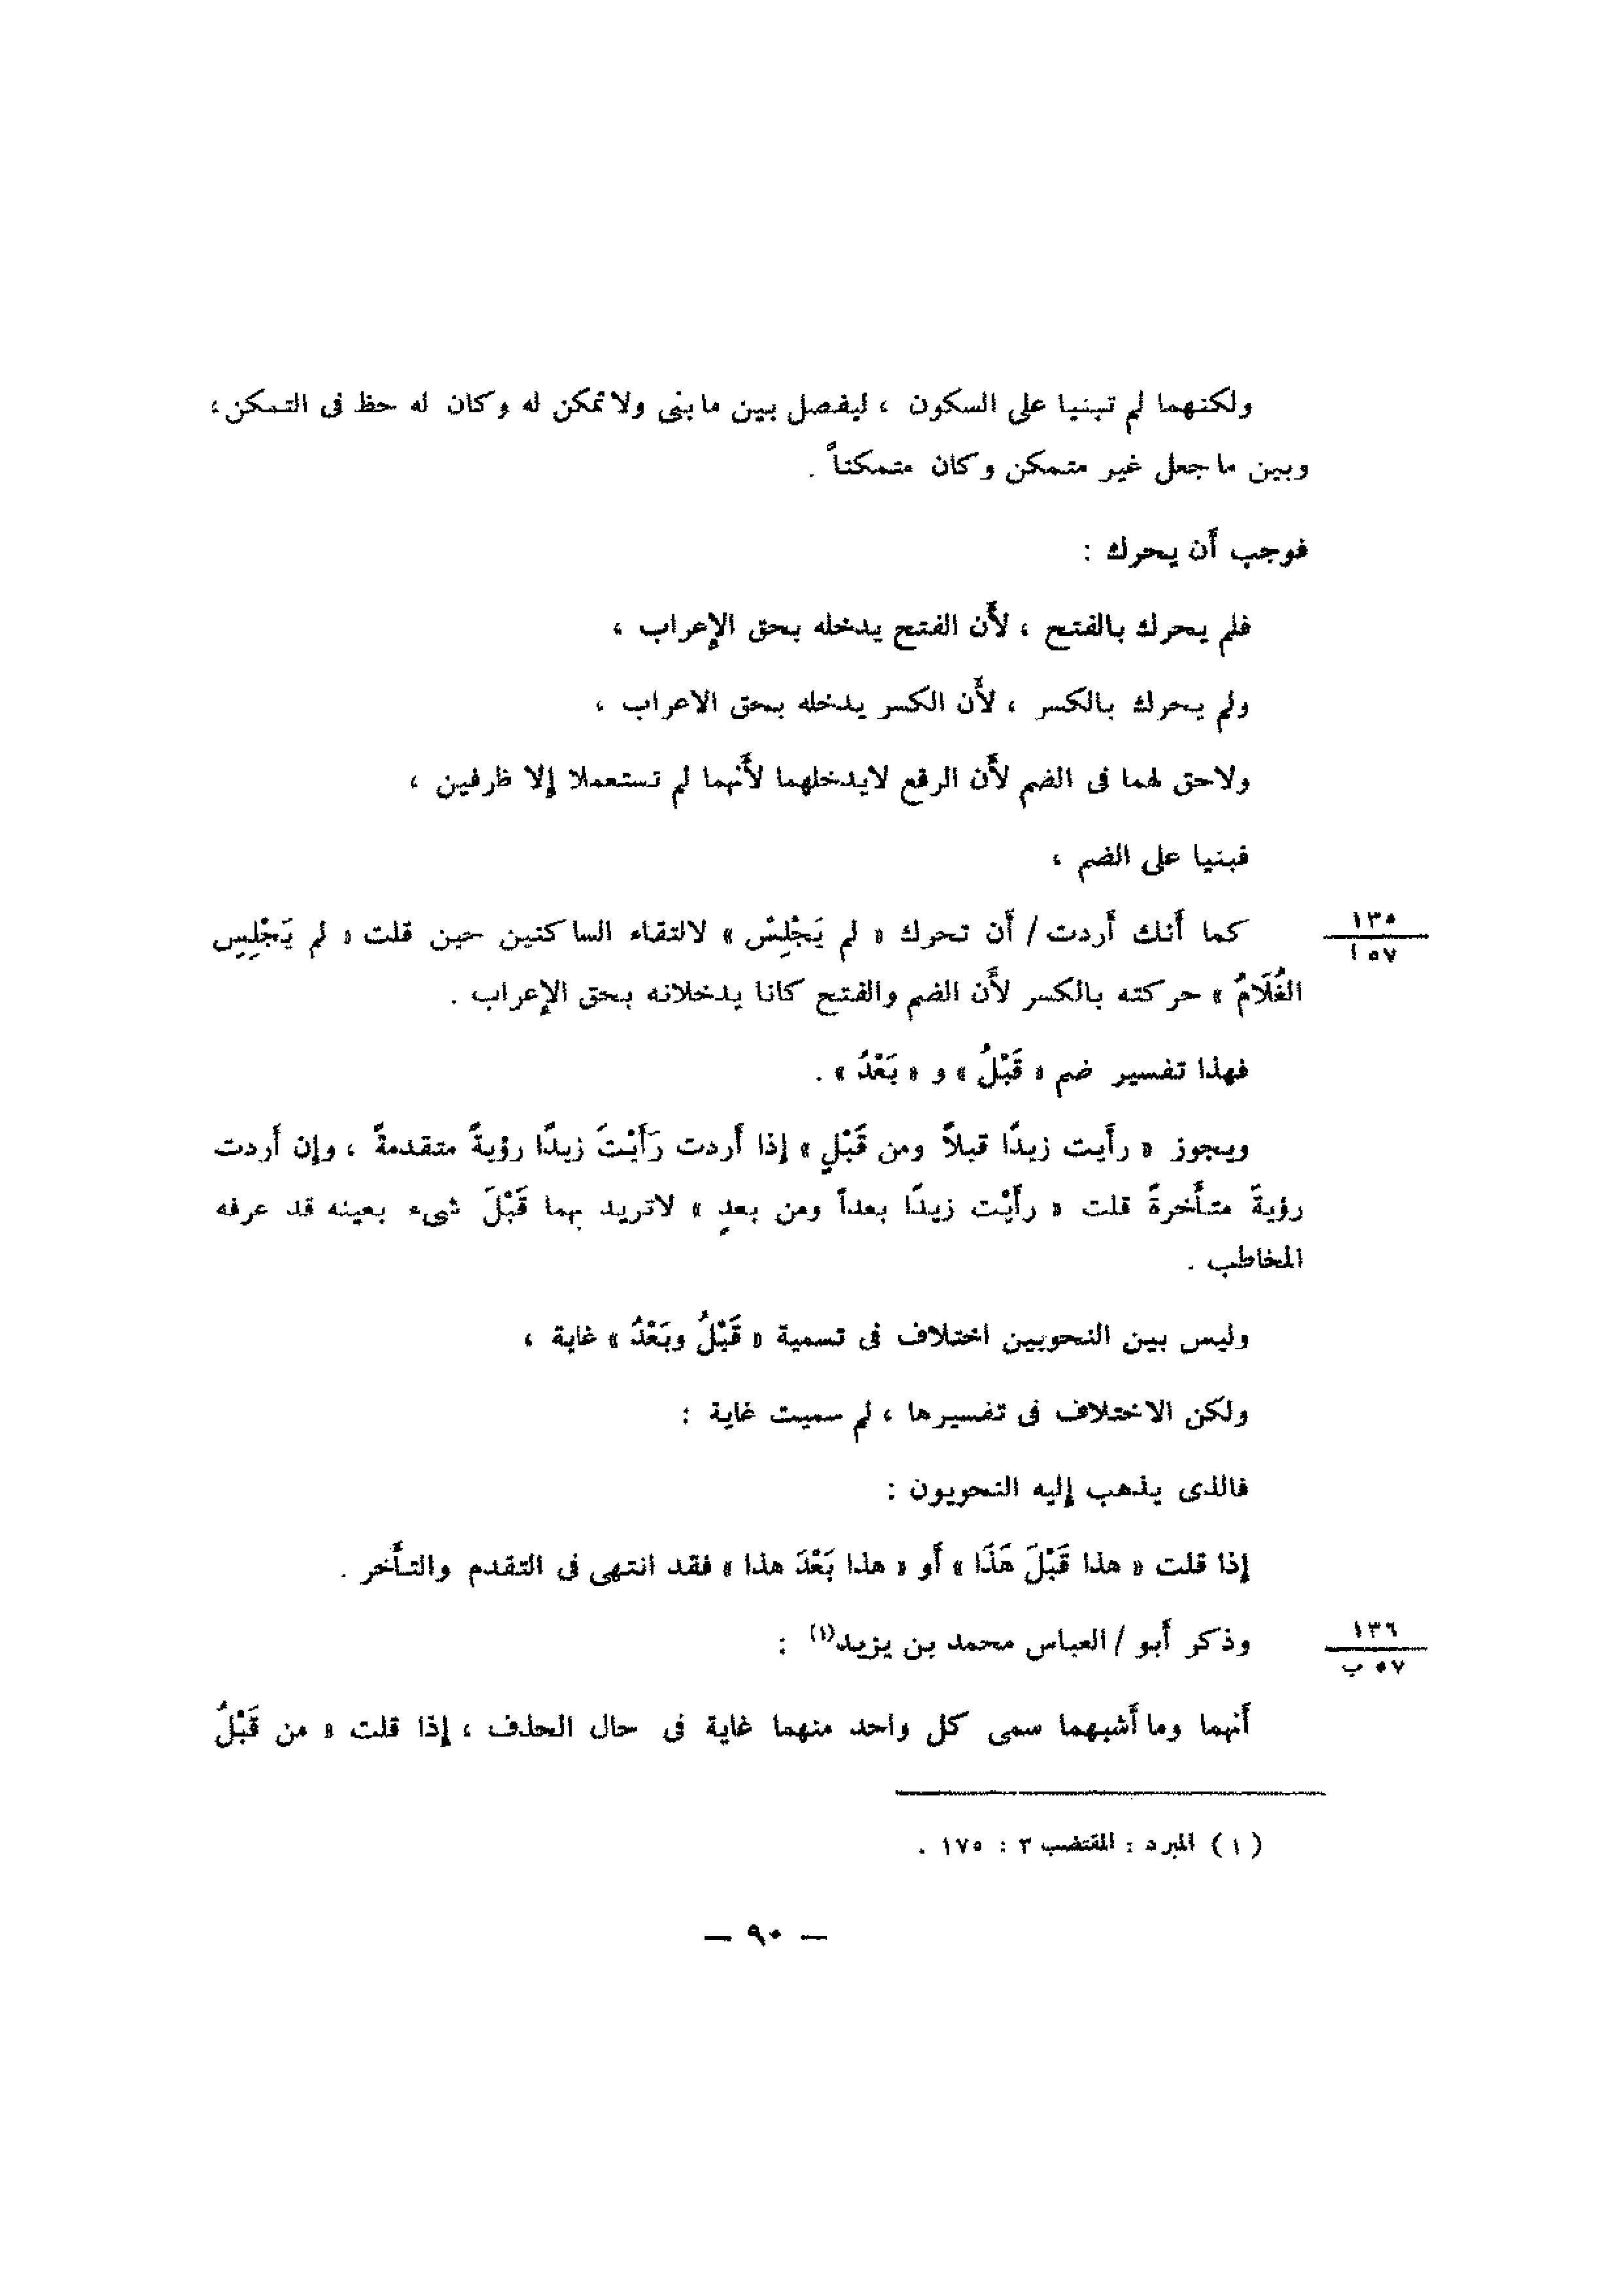 ولكنهما لم تبنيا على السكون ، ليفصل بين ما بنى ولا تمكن له وكان له حظ فى التمكن ،
وبين ما جعل غير متمكن وكان متمكناً .
فوجب أن يحرك :
فلم يحرك بالفتح ، لأَن الفتح يدخله بحق الإعراب ،
ولم يحرك بالكسر ، لأَن الكسر يدخله بحق الاعراب ،
ولاحق لهما فى الضم لأَن الرفع لايدخلهما لأَنهما لم تستعملا إلا ظرفين ،
فبنيا على الضم ،
كما أَنك أَردت / أَن تحرك « لم يَجْلِسْ » لالتقاء الساكنين حين قلت « لم يَجْلِسِ
١٣٥
٥٧ ا
الغُلَامُ » حركته بالكسر لأَن الضم والفتح كانا يدخلانه بحق الإعراب .
فهذا تفسير ضم « قَبْلُ » و « بَعْدُ » .
ويجوز « رأَيت زيدًا قبلاً ومن قَبْلٍ » إذا أَردت رَأَيْتَ زيدًا رؤيةً متقدمةً ، وإن أَردت
رؤيةً متأَخرةً قلت « رأَيْت زيدًا بعداً ومن بعدٍ » لاتريد بهما قَبْلَ شىء بعينه قد عرفه
المخاطب .
وليس بين النحويين اختلاف فى تسمية « قَبْلُ وبَعْدُ » غاية ،
ولكن الاختلاف فى تفسيرها ، لم سميت غاية :
فالذى يذهب إليه النحويون :
إذا قلت « هذا قَبْلَ هَذَا » أَو « هذا بَعْدَ هذا » فقد انتهى فى التقدم والتأَخر .
وذكر أَبو / العباس محمد بن يزيد(١) :
١٣٦
٥٧ ب
أَنهما وما أَشبهما سمى كل واحد منهما غاية فى حال الحذف ، إذا قلت « من قَبْلُ
( ١ ) المبرد : المقتضب ٣ : ١٧٥ .
— ٩٠ —